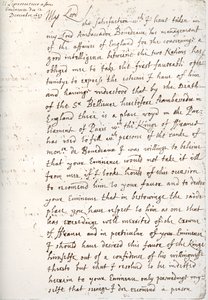 My Lord
the satisfaction wch I have taken in
my Lord Ambassador Bordeaux his management
of the affaires of England for the conserving a
good intelligence between the two Nations has
obliged mee to take the first favorable oppor
tunitye to expresse the esteeme I have of him
and having understood that by the Death
of the Sr. Bellievre heretofore Ambassador in
England there is a place voyd in the Par
liament of Paris wch the Kings of France
has used to fill wth persons of the rank of
Monsr de Bordeaux I was willing to beleeve
that your Eminence would not take it ill
from mee, if I tooke hould of this occasion
to recomend him to your favour and to desire
your Eminence that in bestowinge the said
place you have respect to him as one that
has exceedingly well merited of the Crowne
of France and in particular of your Eminence
I should have desired this favour of the Kinge
himselfe out of a confidence of his willingness
thereto but that I resolved to be indebted
herein to your Eminence only, perswading my
selfe that
a person